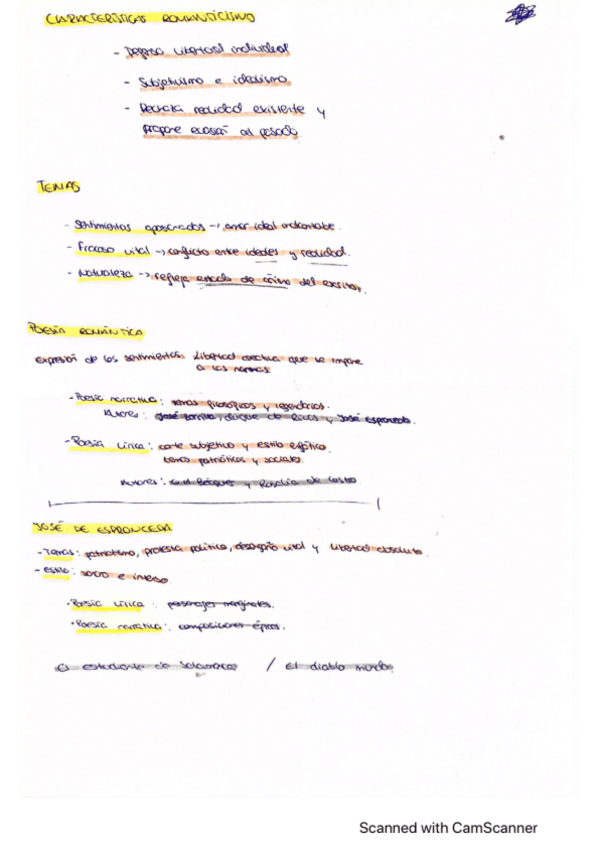 CARACTERÍSTICAS ROMANTICISMO
- Defensa libertad individual
- Subjetivismo e idealismo
- Rechaza realidad existente y
propone evasión al pasado.
TEMAS
- Sentimientos apasionados → amor ideal inalcanzable.
- Fracaso vital → conflicto entre ideales y realidad.
- Naturaleza → refleja estado de ánimo del escritor.
POESÍA ROMÁNTICA
expresión de los sentimientos. Libertad creativa que se impone
a las normas.
- Poesía narrativa: temas filosóficos y legendarios.
Autores: José Zorrilla, duque de Rivas y José Espronceda.
- Poesía lírica: corte subjetivo y estilo
temas patrióticos y sociales.
Autores: G.A Bécquer y Rosalía de Castro
JOSÉ DE ESPRONCEDA
- Temas: patriotismo, protesta política, desengaño vital y libertad absoluta.
- estilo: sonoro e intenso
· Poesía lírica: personajes marginales.
· Poesía narrativa: composiciones épicas.
El estudiante de Salamanca / El diablo mundo.
Scanned with CamScanner